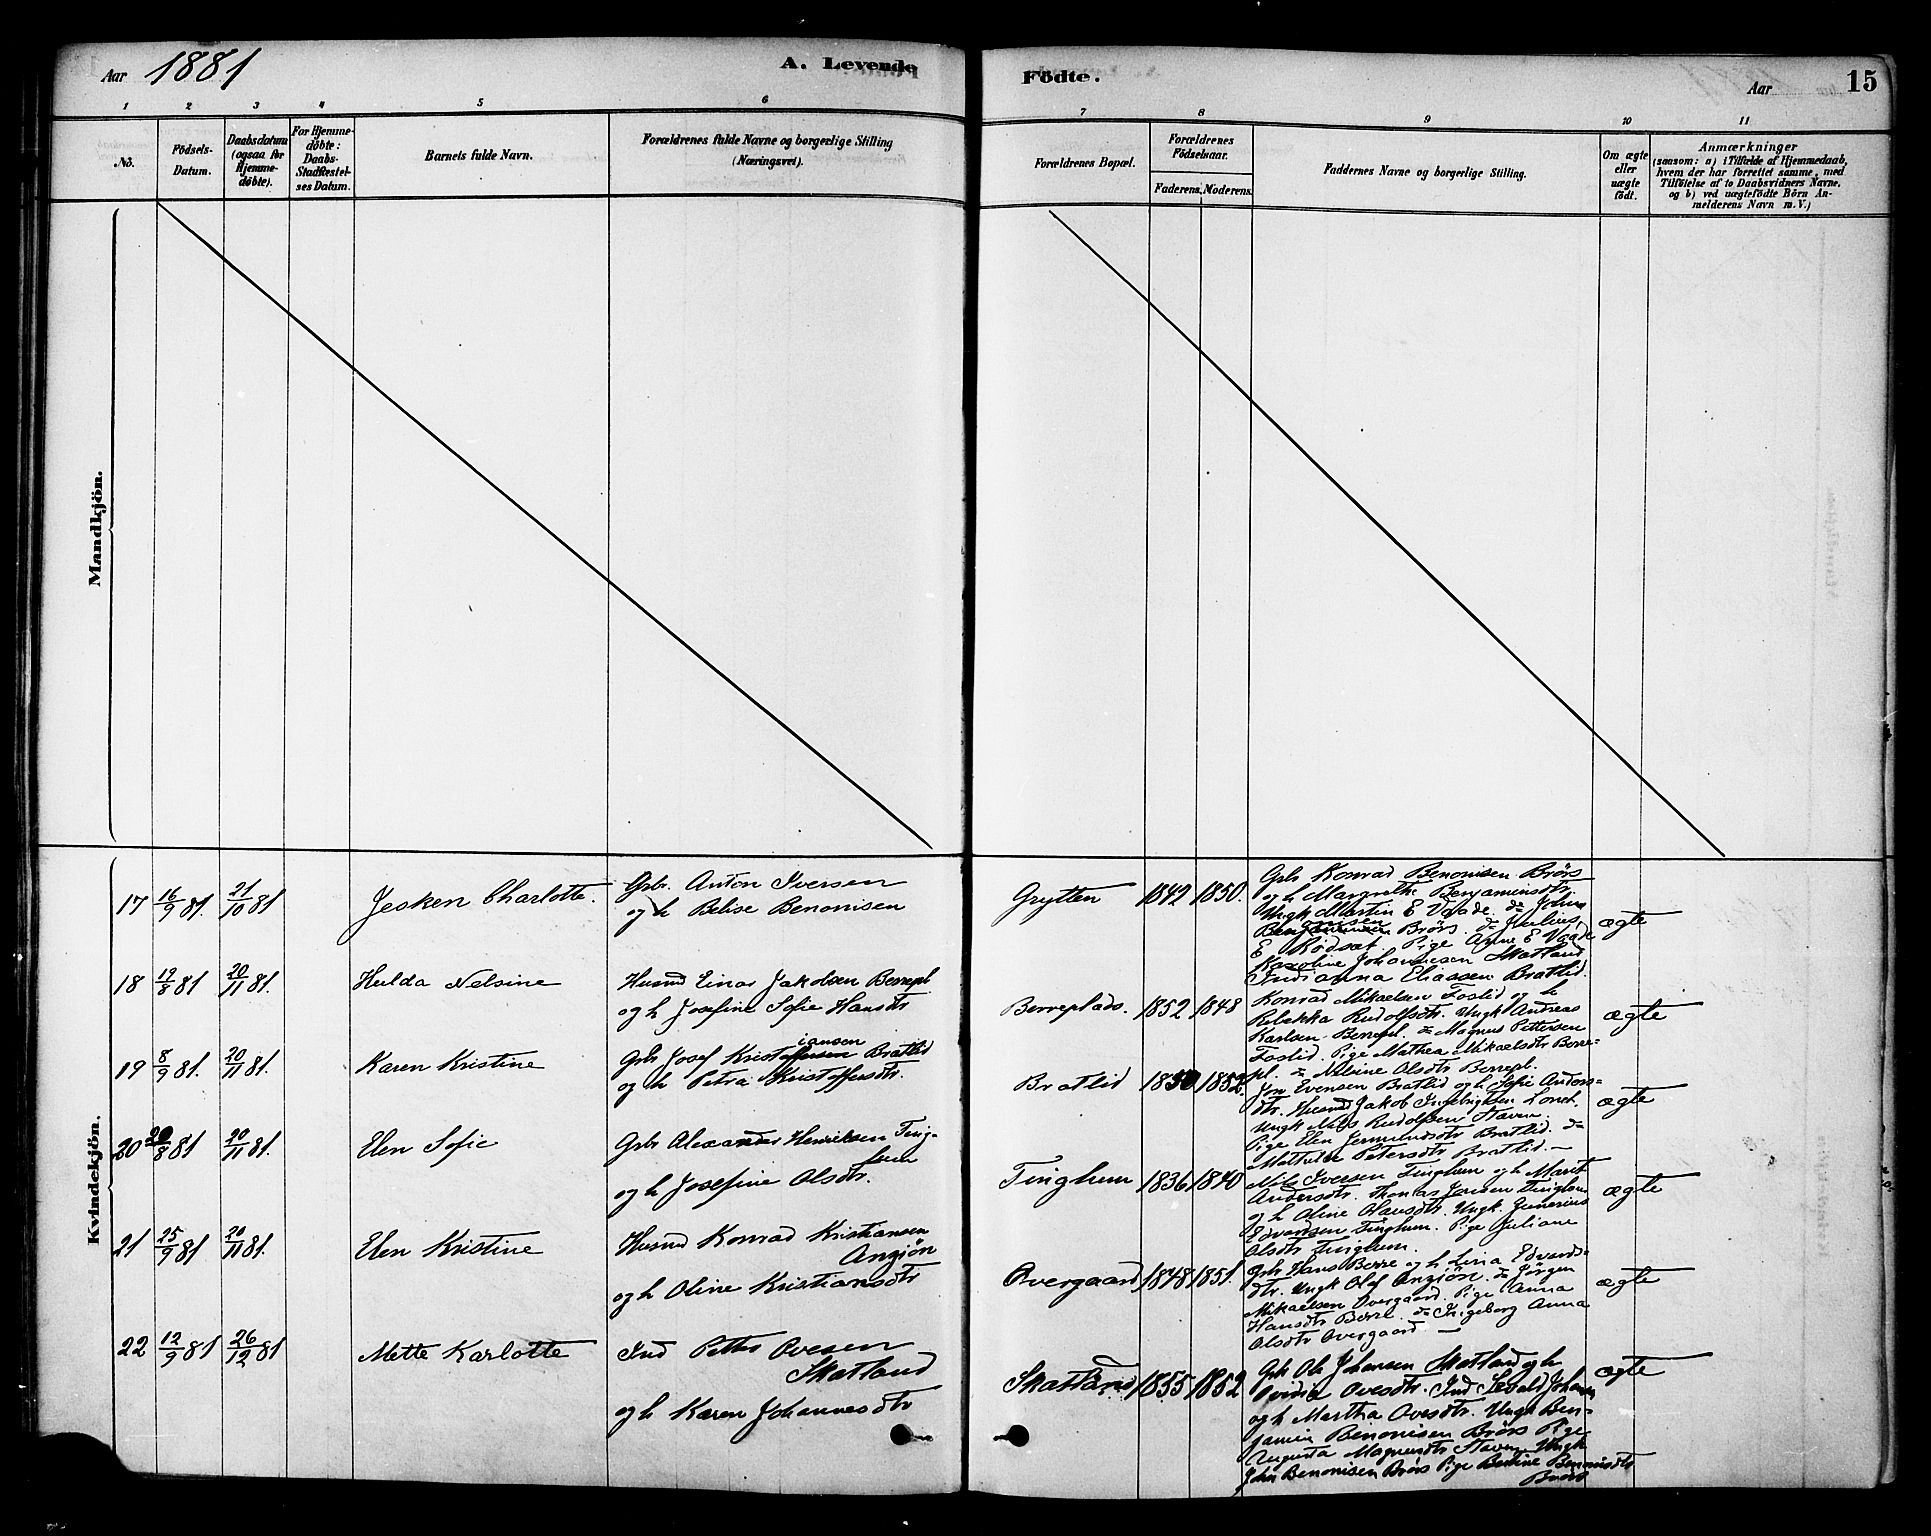 Aar 1881
A. Levende
Födte.
Aar
15
1 2 3 4 5 6
7 8 9 10 11
No.
Födsels-
Datum.
Daabsdatum
(ogsaa for
Hjemme-
döbte).
For Hjemme-
döbte:
Daabs-
Stadfæstel-
ses Datum.
Barnets fulde Navn.
Forældrenes fulde Navne og borgerlige Stilling
(Næringsvei).
Forældrenes Bopæl.
Forældrenes
Födselsaar.
Faderens. Moderens.
Faddernes Navne og borgerlige Stilling.
Om ægte
eller
uægte
födt.
Anmærkninger
(saasom: a) i Tilfælde af Hjemmedaab,
hvem der har forrettet samme, med
Tilföielse af to Daabsvidners Navne,
og b) ved uægtefödte Börn An-
melderens Navn m. V.)
Mandkjön.
Kvindekjön.
17 16/9 81. 21/10 81 Jesken Charlotte.
Grbr. Anton Iversen
og h Belise Benonisen
Grytten 1842 1850.
Grbr Konrad Benonisen Brörs
og h Margrethe Benjaminsdtr.
Ungk Martin E Vaade. do Johan
Benonisen Brörs. do Julius
E Rödsæt. Pige Anne E Vaade
Karoline Johannesen Skatland
Indianna Eliassen Bratlid.
ægte
18 19/8 81 20/11 81. Hulda Nelsine
Husmd Einar Jakobsen Berrepl
og h Josefine Sofie Hansdtr
Berreplads. 1852 1848
Konrad Mikaelsen Foslid og h
Rebekka Rudolfsdtr. Ungk Andreas
Karlsen Berrepl. do Magnus Pettersen
Foslid. Pige Mathea Mikaelsdtr Berre-
pl. do Nelsine Olsdtr Berrepl.
ægte
19 8/9 81. 20/11 81. Karen Kristine
iansen
Grbr Josef Kristoffersen Bratlid
og h Petra Kristoffersdtr.
Bratlid 1850 1852.
Jon Evensen Bratlid og h Sofie Anders-
dtr. Husmd Jakob Ingebrigtsen
Ungk Nils Rudolfsen Staven.
Pige Elen Jermundsdtr Bratlid. do
Mathilde Petersdtr Bratlid. —
ægte
20 20/8 81 20/11 81. Elen Sofie
Grbr Alexander Henriksen Ting-
hum
og h Josefine Olsdtr.
Tinghum 1836 1840
Nils Iversen Tinghum og h Marit
Andersdtr. Thomas Jensen Tinghum
og h Oline Hansdtr. Ungk
Edvardsen Tinghum. Pige Juliane
Olsdtr Tinghum.
ægte
21 25/9 81 20/11 81. Elen Kristine
Husmd Konrad Kristiansen
Angjön
og h Oline Kristiansdtr
Overgaard 1848 1851.
Grbr Hans Berre og h Lina Edvards-
dtr. Ungk Olaf Angjön. do Jörgen
Mikaelsen Overgaard. Pige Anna
Hansdtr Berre. do Ingeborg Anna
Olsdtr Overgaard —
ægte
22 12/9 81 26/12 81 Mette Karlotte
Ind Petter Ovesen
Skatland
og h Karen Johannesdtr
Skatland 1855 1852
Grbr Ole Johansen Skatland og h
Ovidia Ovesdtr. Ind Johans
og h Martha Ovesdtr. Ungk Ben-
jamin Benonisen Brörs Pige
Augusta Magnusdtr Staven Ungk
John Benonisen Brörs Pige Benonisdtr
Brörs
ægte